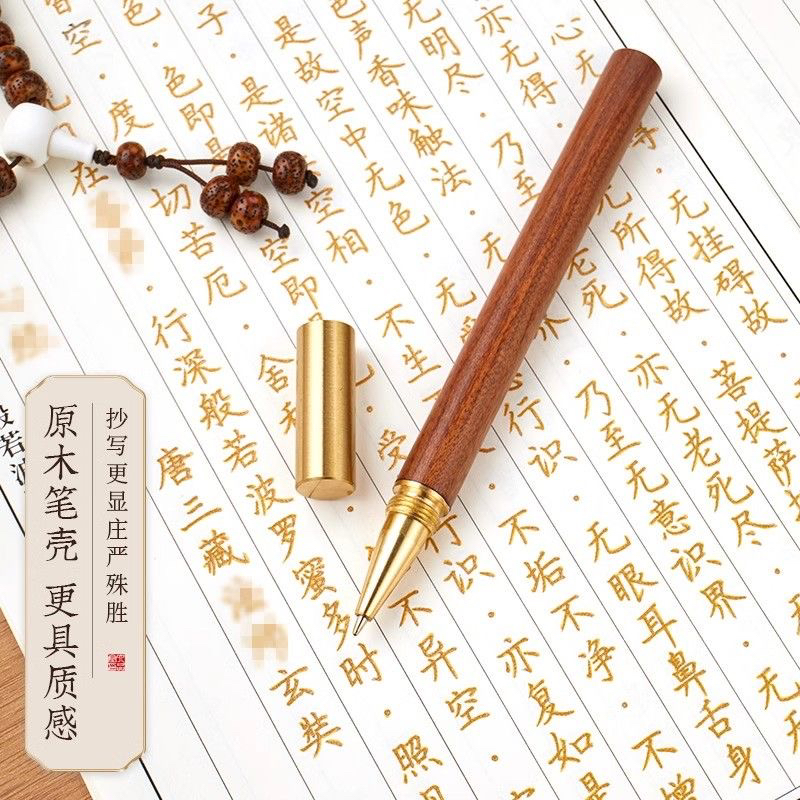 心无
无挂碍故
亦无得
无所得故
菩提萨
无明尽
乃至
老死
亦无老死尽
色声香味触法
无
乃至无意识界
无无
是故空中无色
受
行识
无眼耳鼻舌身
子
是诸
空相
不生
不垢不净
不增
色即是
空即
行识
亦复如是
空
度
切苦厄
舍
不异空
行深般若波罗蜜多时
照
唐三藏
玄奘
在
般若波
抄写更显庄严殊胜
原木笔壳 更具质感